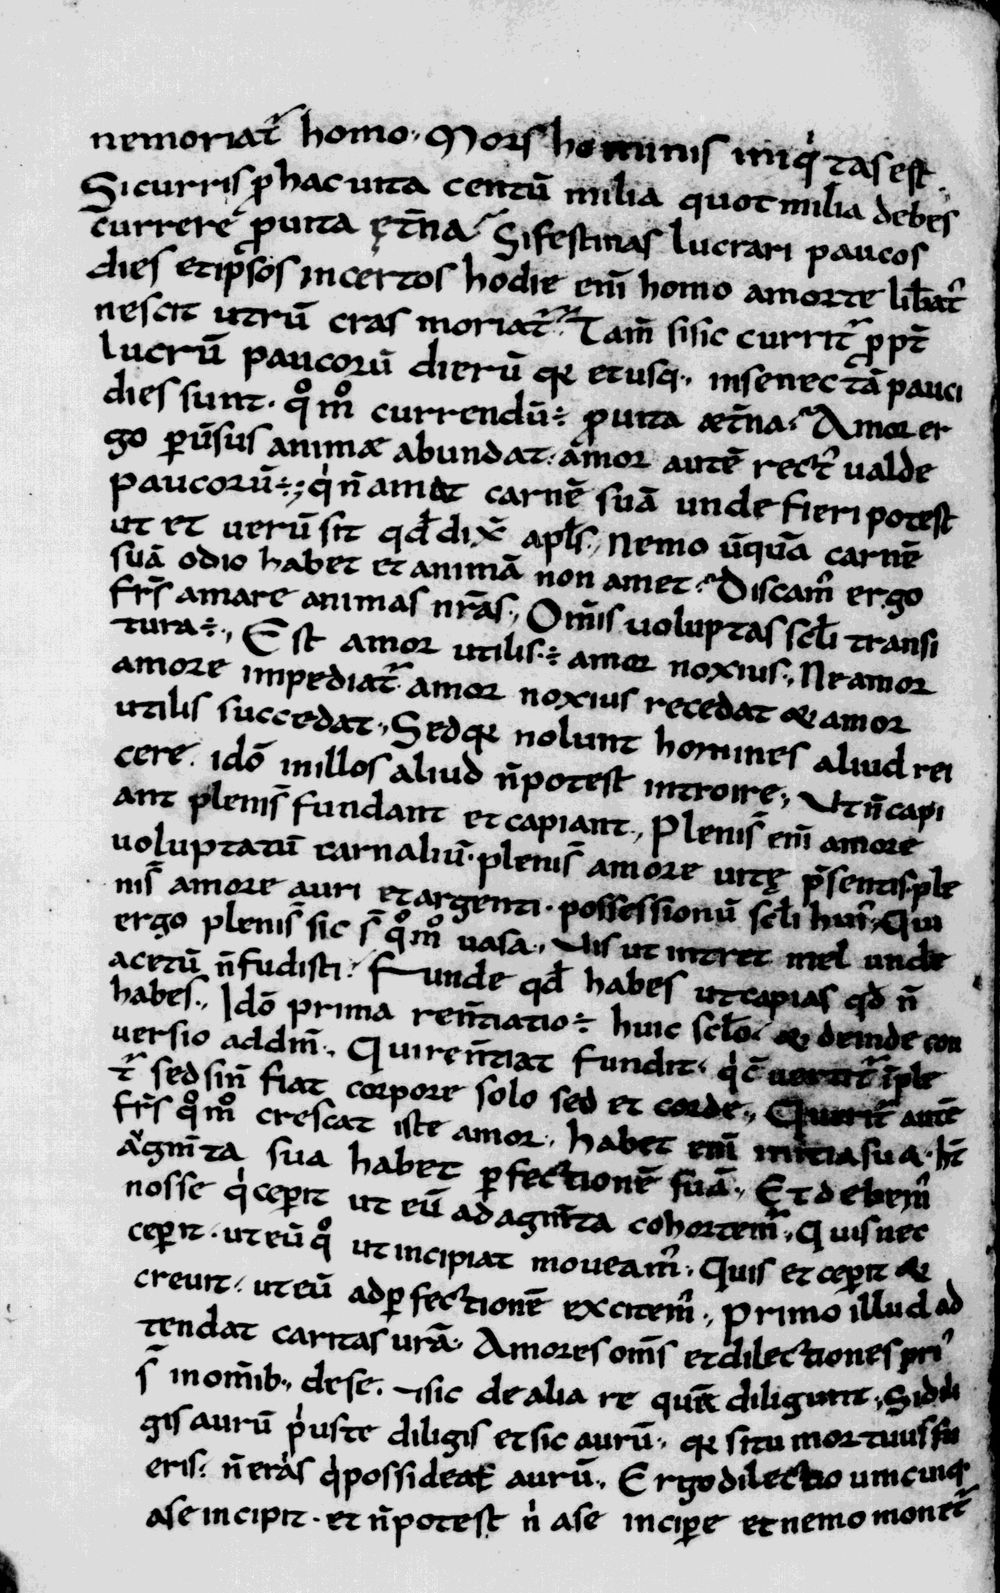 nemoriat᷑ homo· Mors hominis iniq̇tas est·
Si curris ꝓ hac uita centū milia quot milia debes
currere ꝓ uita ęt̄na· Si festinas lucrari paucos
dies et ip̄sos incertos hodie em̄ homo amorte lib̄at᷑
nescit utrū cras moriat᷑· Tam̄ si sic currit᷑ ꝓpt̄
lucrū paucorū dierū qꝛ et usq· in senectā pauci
dies sunt· qͦmͦ currendū÷ ꝓ uita æt̄na· Amor er
go ꝑūsus animæ abundat· amor autē rect᷑ ualde
paucorū÷; qi n̄ amat carnē suā unde fieri potest
ut et uerū sit qd̄ dix̄ apl̄s· Nemo ūquā carnē
suā odio habet et animā non amet· Discam᷑ ergo
fr̄s amare animas nr̄as· Om̄is uoluptas scl̄i transi
tura÷· Est amor utilis·÷ amor noxius· Ne amor
amore impediat᷑· amor noxius recedat & amor
utilis succedat· Sed qꝛ nolunt homines aliud rei
cere· idō in illos aliud n̄ potest introire· Ut n̄ capi
ant plenis̄ fundant et capiant· Plenis̄ em̄ amore
uoluptatū carnaliū· plenis̄ amore uitę p̄sentis· ple
nis̄ amore auri et argenti· possessionū scl̄i hui᷑· Qui
ergo plenis̄ sic s̄ qͦmͦ uasa· Uis ut intret mel unde
acetū n̄ fudisti· Funde qd̄ habes ut capias qd̄ n̄
habes· Idō prima ren̄tiatio÷ huic scl̄o· & deinde con
versio ad dm̄· Qui ren̄tiat fundit· qi c̄uertit᷑ īple
t᷑ sed si n̄ fiat corpore solo sed et corde· Querit᷑ autē
fr̄s qͦmͦ crescat iste amor· habet em̄ initia sua· ht̄
agm̄ta sua habet ꝑfectionē suā· Et debem᷑
nosse qi cepit ut eū ad agm̄ta cohortem᷑· Quis nec
cepit· ut eū qͦ ut incipiat moueam᷑· Quis et cepit &
creuit· ut eū ad ꝑfectionē excitem᷑· Primo illud ad
tendat caritas ur̄a· Amores om̄s et dilectiones pri᷑
s̄ in om̄ib· de se· & sic de alia re quā diligunt· Si dili
gis aurū p̓us te diligis et sic aurū· qꝛ si tu mortuus fu
eris· n̄ erit qi possideat aurū· Ergo dilectio unicuiq
a se incipit· et n̄ potest ni a se incipere et nemo monet᷑